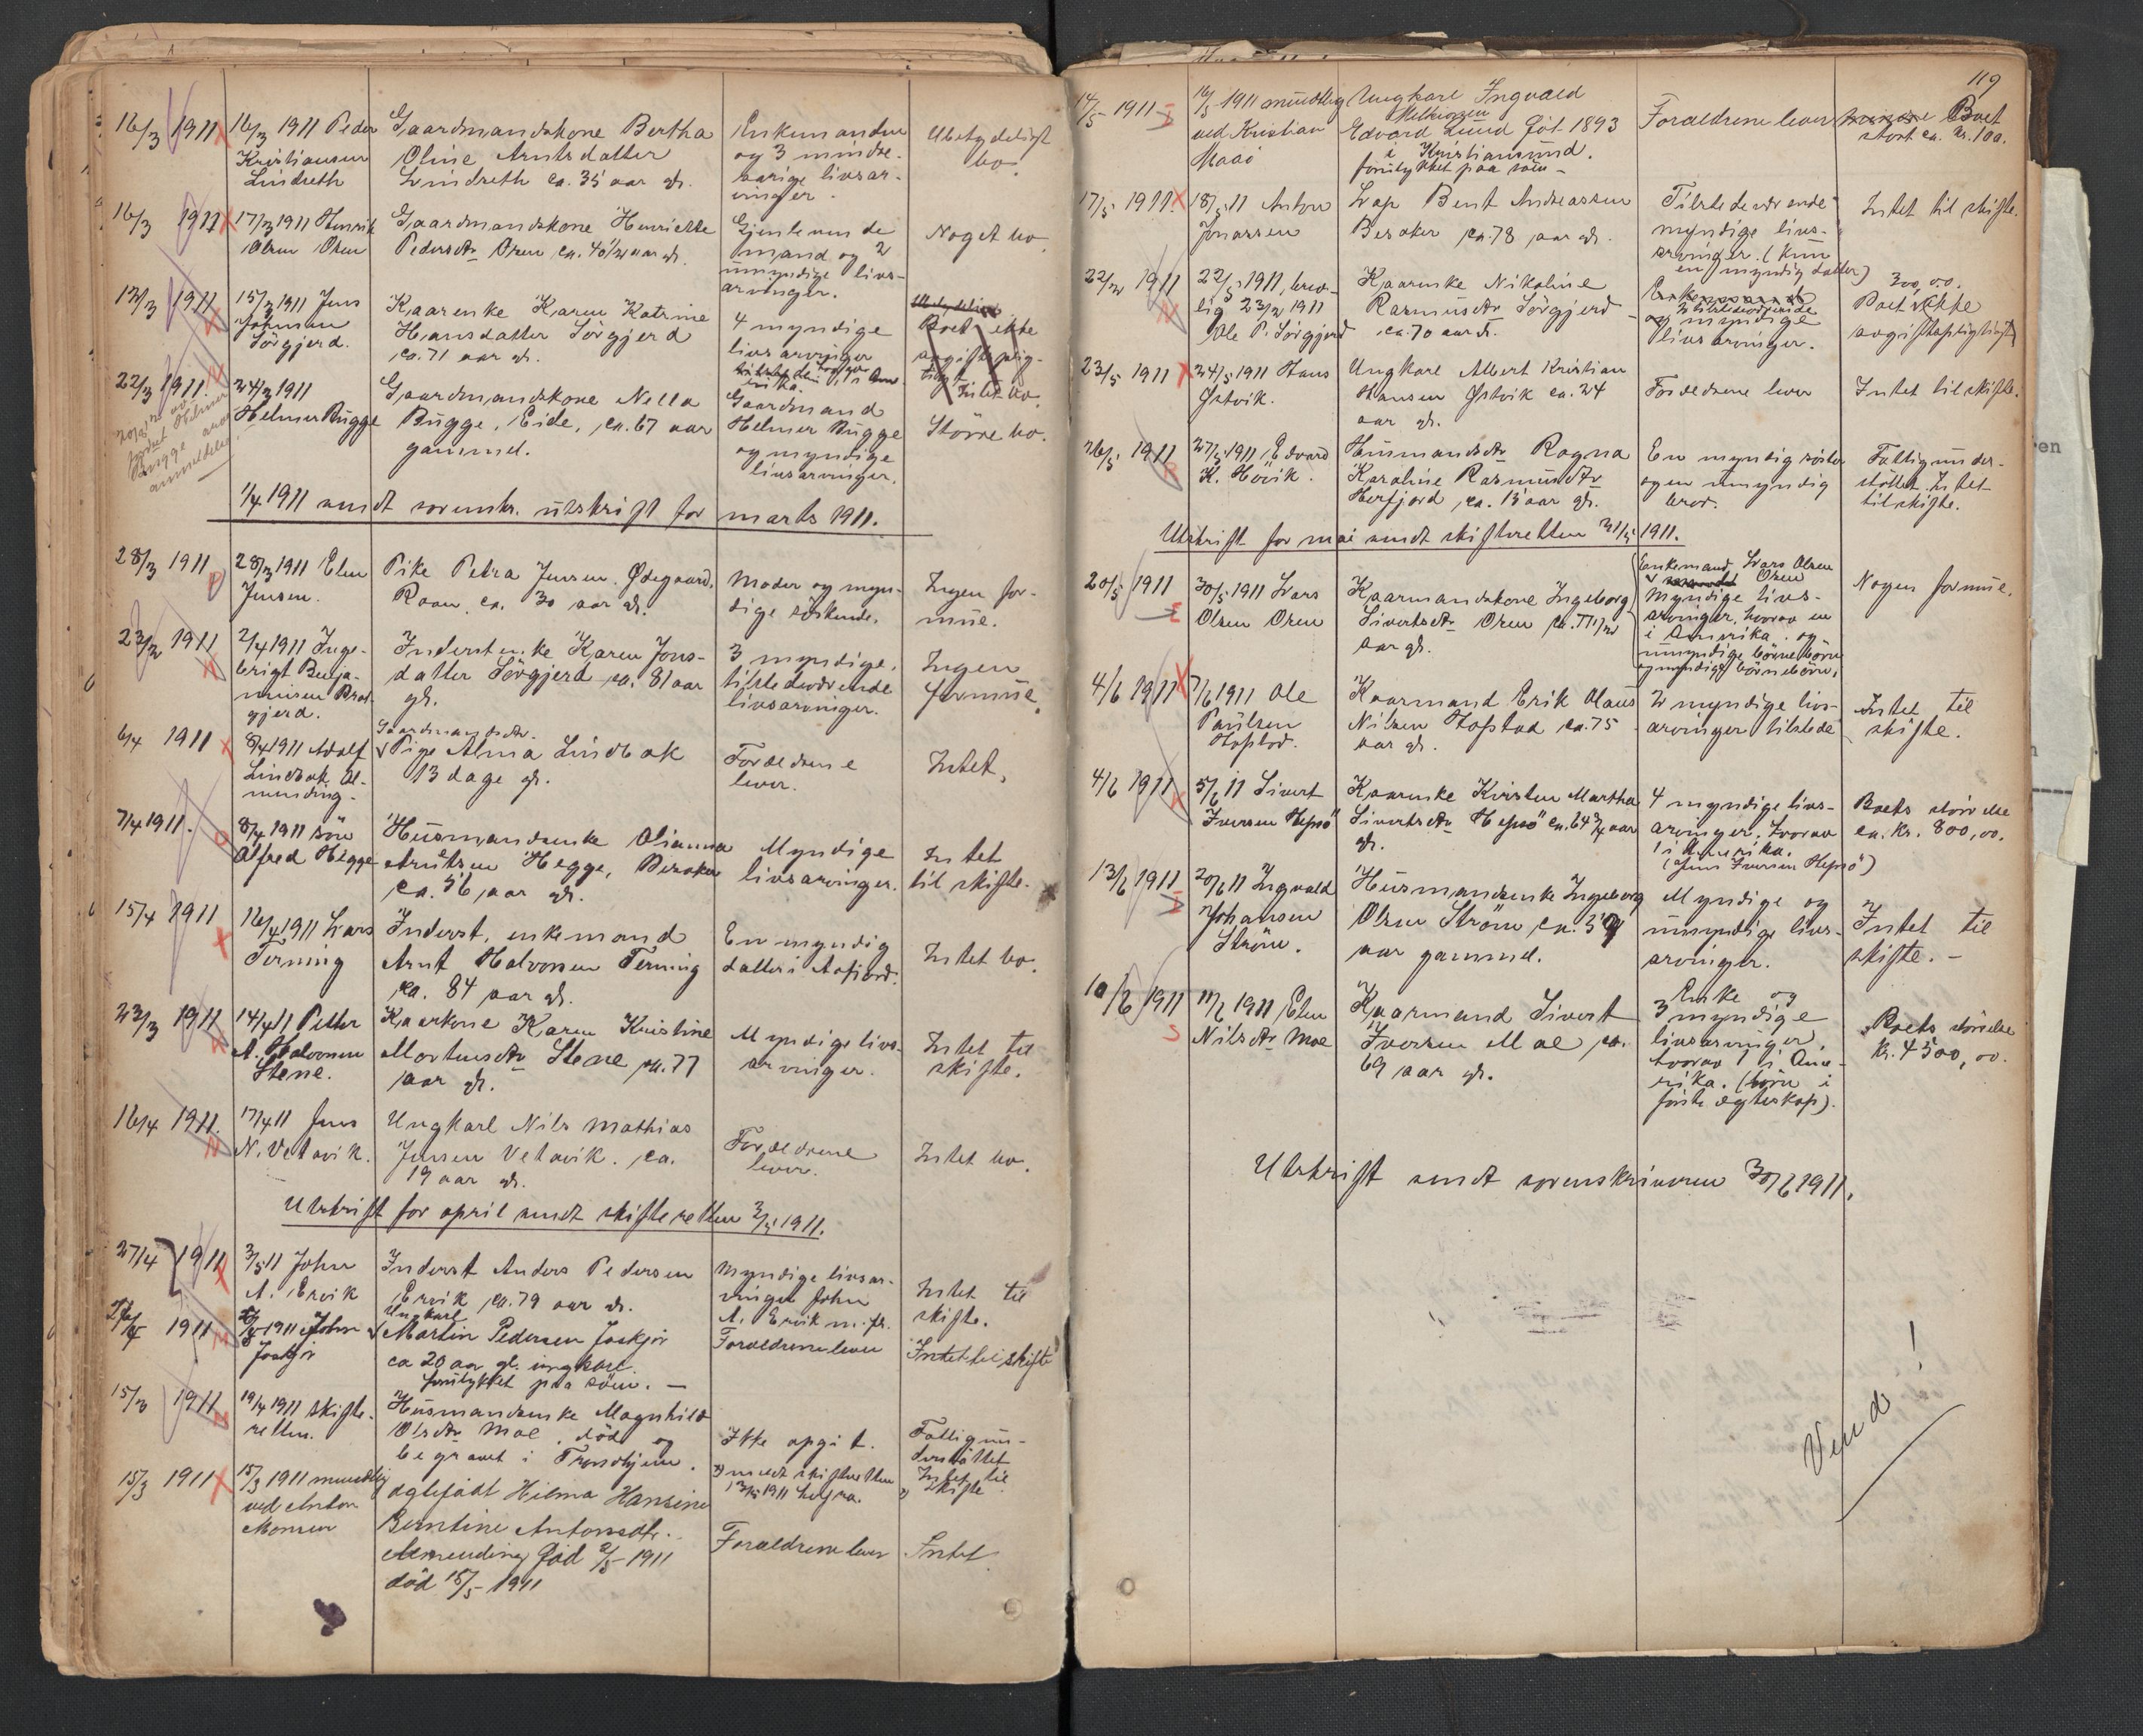 16/3 1911 16/3 1911 Peder Gaardmandskone Bertha Enkemanden Ubetydeligt
Kristiansen Oline Arntsdatter og 3 mindre- bo.
Lindseth Lindseth ca. 35 aar gl. aarige livsar-
vinger.
16/3 1911 17/3 1911 Henrik Gaardmandskone Henriette Gjenlevende Noget bo
Olsen Osen Pedersdtr Osen ca. 40 1/2 aar gl. mand og 2
umyndige livs-
arvinger.
13/3 1911 15/3 1911 Jens Kaarenke Karen Katrine 4 myndige Boet ikke
Johnsen Hansdatter Sörgjerd livsarvinger avgiftsplig-
Sörgjerd. ca. 71 aar gl. tigt
Intet bo.
22/3 1911. 24/3 1911 Gaardmandskone Nella Gaardmand Större bo.
Helmer Bugge Bugge, Eide, ca. 67 aar Helmer Bugge
gammel. og myndige
livsarvinger.
1/4 1911 sendt sorenskr. utskrift for marts 1911.
28/3 1911 28/3 1911 Elen Pike Petra Jensen Ødegaard, Moder og myn- Ingen for-
Jensen. Roan, ca. 30 aar gl. dige söskende. mue.
23/2 1911 2/4 1911 Inge- Inderstenke Karen Jons- 3 myndige, Ingen
brigt Benja- datter Sörgjerd ca. 81 aar tilstedeværende formue.
minsen gl. livsarvinger.
gjerd.
6/4 1911 8/4 1911 Adolf Gaardmandsdtr.
Lindbak Al- Pige Alma Lindbak Forældrene Intet.
menning. 13 dage gl. lever.
7/4 1911. 8/4 1911 sön Husmandsenke Olianna Myndige Intet
Alfred Hegge Arntsen Hegge, Besaker livsarvinger. til skifte.
ca. 56 aar gl.
15/4 1911 16/4 1911 Lars Inderst, enkemand En myndig Intet bo.
Terning Arnt Halvorsen Terning datter i Aafjord.
ca. 84 aar gl.
23/3 1911 14/4 11 Petter Kaarkone Karen Kristine Myndige livs- Intet til
A. Halvorsen Mortensdtr Stene ca. 77 arvinger. skifte.
Stene. aar gl.
16/4 1911. 17/4 11 Jens Ungkarl Nils Mathias Forældrene Intet bo.
N. Vetavik. Jensen Vetavik. ca. lever.
19 aar gl.
Utskrift for april sendt skifteretten 2/5 1911.
27/4 1911 3/5 11 John Inderst Anders Pedersen Myndige livsar- Intet til
A. Ervik Ervik ca. 79 aar gl. vinger John skifte.
Ungkarl A. Ervik m. fl.
1911 1911 John Martin Pedersen Joskjör Forældrene lever Intet til skifte
Joskjör ca 20 aar gl. ungkarl.
forulykket paa söen. —
15/3 1911 19/4 1911 skifte- Husmandsenke Magnhild Ikke opgit. Fattigun-
retten. Olsdtr Moe, död og derstöttet
begravet i Trondhjem. Intet til
skifte
15/5 1911 15/5 1911 mundtlig ægtefödt Hilma Hansine Forældrene lever Intet
ved Anton Berntine Antonsdtr.
Monsen Almenning Född 2/5 1911
död 15/5 1911

119
14/5 1911 16/5 1911 mundtlig Ungkarl Ingvald Forældrene lever Boet
ved Kristian Melkiorsen stort ca. kr. 100.
Maaö Edvard Lund föt 1893
i Kristiansund.
forulykket paa söen —
17/5 1911. 18/5 11 Anton Lap Bent Andreassen Tilstedeværende Intet til skifte.
Jonassen Besaker ca. 78 aar gl. myndige livs-
arvinger. (Kun
en myndig datter)
22/2 1911 22/5 1911, brev- Kaarenke Nikoline 2 tilstedeværende 300,00.
lig 23/2 1911 Rasmusdtr Sörgjerd myndige Boet ikke
Ole P. Sörgjerd ca. 70 aar gl. livsarvinger. avgiftspligtigt
23/5 1911 24/5 1911 Hans Ungkarl Albert Kristian Forældrene lever Intet til skifte.
Østvik. Hansen Østvik ca. 24
aar gl.
26/5 1911 27/5 1911 Edvard Husmandsdtr Ragna En myndig söster Fattigunder-
K. Hövik. Karoline Rasmusdtr og en umyndig stöttet. Intet
Herfjord, ca. 15 aar gl. bror. til skifte.
Utskrift for mai sendt skifteretten 31/5 1911.
20/5 1911 30/5 1911 Lars Kaarmandskone Ingeborg Enkemand Lars Olsen Nogen formue.
Olsen Osen Sivertsdtr Osen ca. 77 1/2 Osen
aar gl. Myndige livs-
arvinger, hvorav en
i Amerika. og
umyndige börnebörn
og myndige börnebörn.
4/6 1911 7/6 1911 Ole Kaarmand Erik Olaus 2 myndige livs- Intet til
Paulsen Nilsen Hofstad ca. 75 arvinger tilstede skifte.
Hofstad. aar gl.
4/6 1911 5/6 11 Sivert Kaarenke Kirsten Martha 4 myndige livs- Boets störrelse
Iversen Hepsö Sivertsdtr Hepsö ca. 64 3/4 aar arvinger, hvorav ca. kr. 800,00.
gl. 1 i Amerika.
(Jens Iversen Hepsö)
13/6 1911 20/6 11 Ingvald Husmandsenke Ingeborg Myndige og Intet til
Johansen Olsen Ström ca. 59 umyndige livs- skifte. —
Ström. aar gammel. arvinger.
10/6 1911 11/6 1911 Elen Kaarmand Sivert Enke og Boets störrelse
Nilsdtr Moe Iversen Moe ca. 3 myndige kr. 4500,00.
69 aar gl. livsarvinger,
hvorav 1 i Ame-
rika. (börn i
förste ægteskap).
Utskrift sendt sorenskriveren 30/6 1911.
Vend!